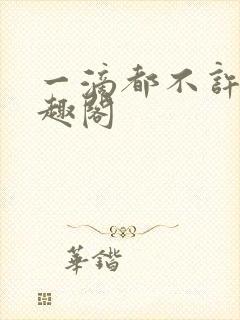 一滴都不許
趣閣
華鍇